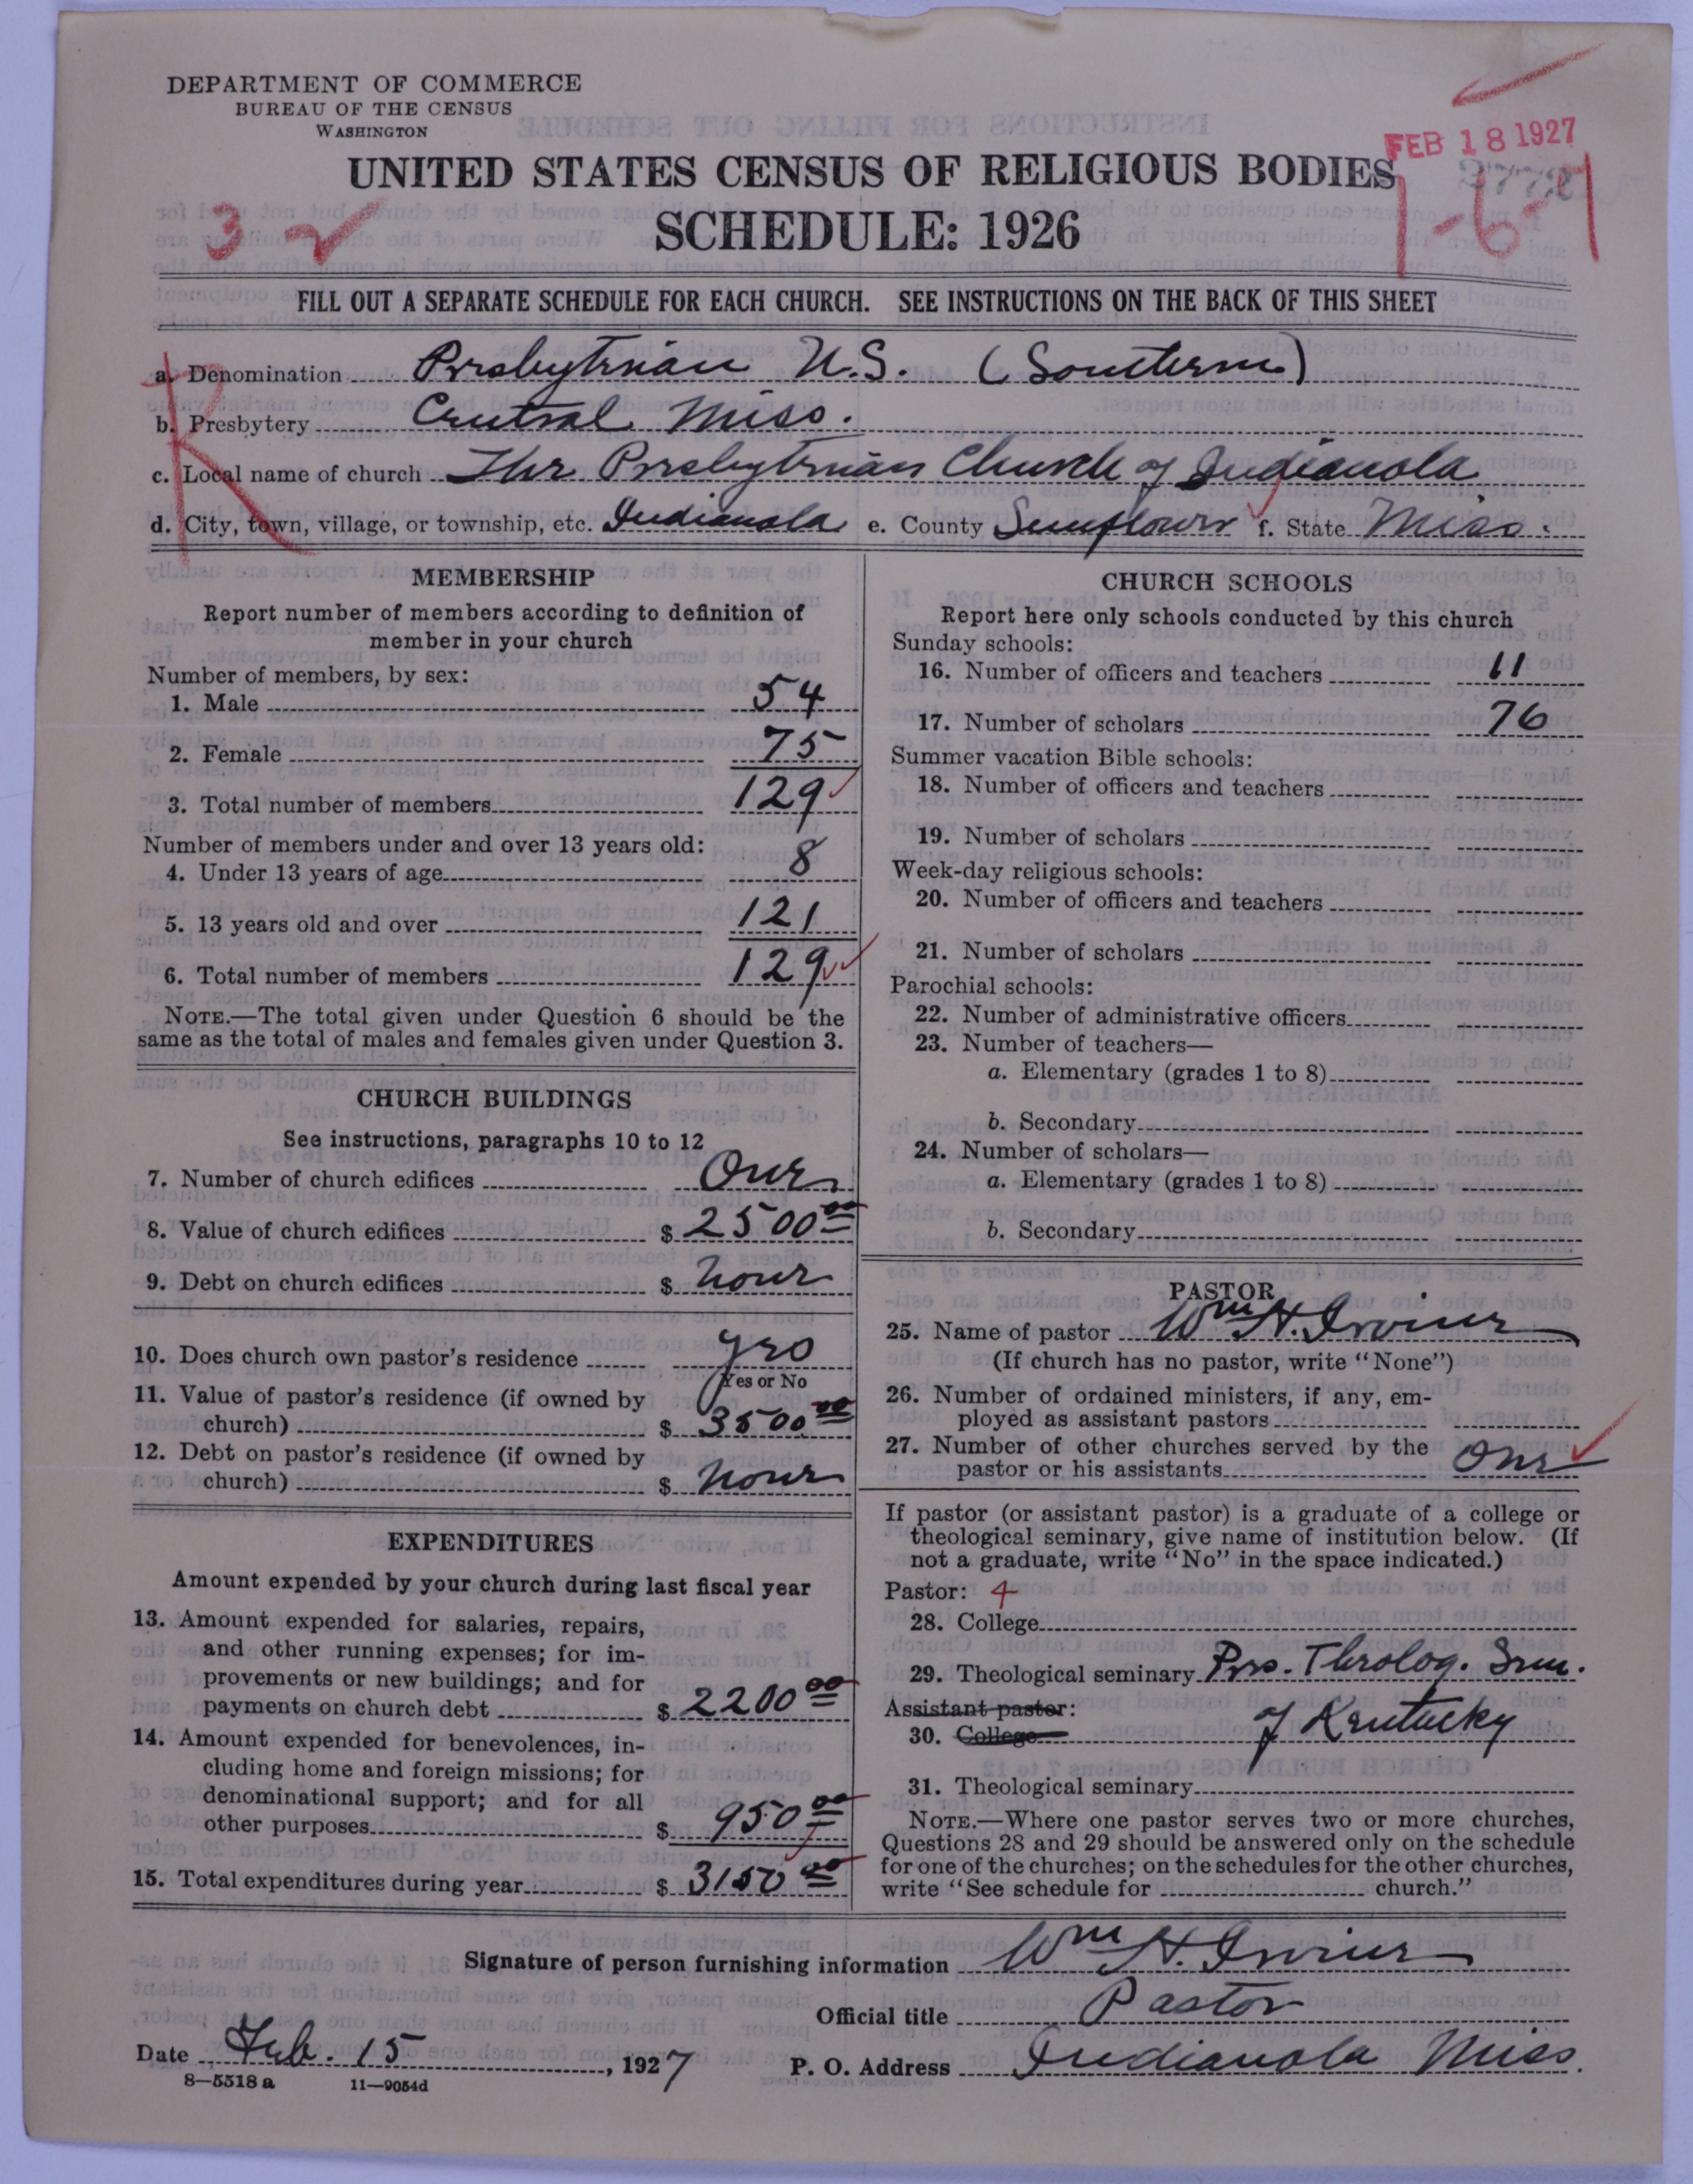 DEPARTMENT OF COMMERCE
BUREAU OF THE CENSUS
WASHINGTON
FEB 18 1927
UNITED STATES CENSUS OF RELIGIOUS BODIES
1-6-1
3 2
SCHEDULE: 1926
FILL OUT A SEPARATE SCHEDULE FOR EACH CHURCH. SEE INSTRUCTIONS ON THE BACK OF THIS SHEET
R
a. Denomination Presbyterian U.S. (Southern)
b. Presbytery Central Miss.
c. Local name of church The Presbyterian Church of Indianola
d. City, town, village, or township, etc. Indianola e. County Sunflower f. State Miss.
MEMBERSHIP
Report number of members according to definition of
member in your church
Number of members, by sex:
1. Male 54
2. Female 75
3. Total number of members 129
Number of members under and over 13 years old:
4. Under 13 years of age 8
5. 13 years old and over 121
6. Total number of members 129
NOTE.—The total given under Question 6 should be the
same as the total of males and females given under Question 3.
CHURCH BUILDINGS
See instructions, paragraphs 10 to 12
7. Number of church edifices One
8. Value of church edifices $ 2500.00
9. Debt on church edifices $ None
10. Does church own pastor's residence Yes
Yes or No
11. Value of pastor's residence (if owned by
church) $ 3500.00
12. Debt on pastor's residence (if owned by
church) $ None
EXPENDITURES
Amount expended by your church during last fiscal year
13. Amount expended for salaries, repairs,
and other running expenses; for im-
provements or new buildings; and for
payments on church debt $ 2200.00
14. Amount expended for benevolences, in-
cluding home and foreign missions; for
denominational support; and for all
other purposes $ 950.00
15. Total expenditures during year $ 3150.00
CHURCH SCHOOLS
Report here only schools conducted by this church
Sunday schools:
16. Number of officers and teachers 11
17. Number of scholars 76
Summer vacation Bible schools:
18. Number of officers and teachers
19. Number of scholars
Week-day religious schools:
20. Number of officers and teachers
21. Number of scholars
Parochial schools:
22. Number of administrative officers
23. Number of teachers—
a. Elementary (grades 1 to 8)
b. Secondary
24. Number of scholars—
a. Elementary (grades 1 to 8)
b. Secondary
PASTOR
25. Name of pastor Wm H. Irvine
(If church has no pastor, write "None")
26. Number of ordained ministers, if any, em-
ployed as assistant pastors
27. Number of other churches served by the
pastor or his assistants One
If pastor (or assistant pastor) is a graduate of a college or
theological seminary, give name of institution below. (If
not a graduate, write "No" in the space indicated.)
Pastor: 4
28. College
29. Theological seminary Pres. Theolog. Sem.
Assistant pastor:
30. College of Kentucky
31. Theological seminary
NOTE.—Where one pastor serves two or more churches,
Questions 28 and 29 should be answered only on the schedule
for one of the churches; on the schedules for the other churches,
write "See schedule for church."
Signature of person furnishing information Wm H. Irvine
Official title Pastor
Date Feb. 15, 1927 P. O. Address Indianola Miss.
8—5518 a 11—9054d